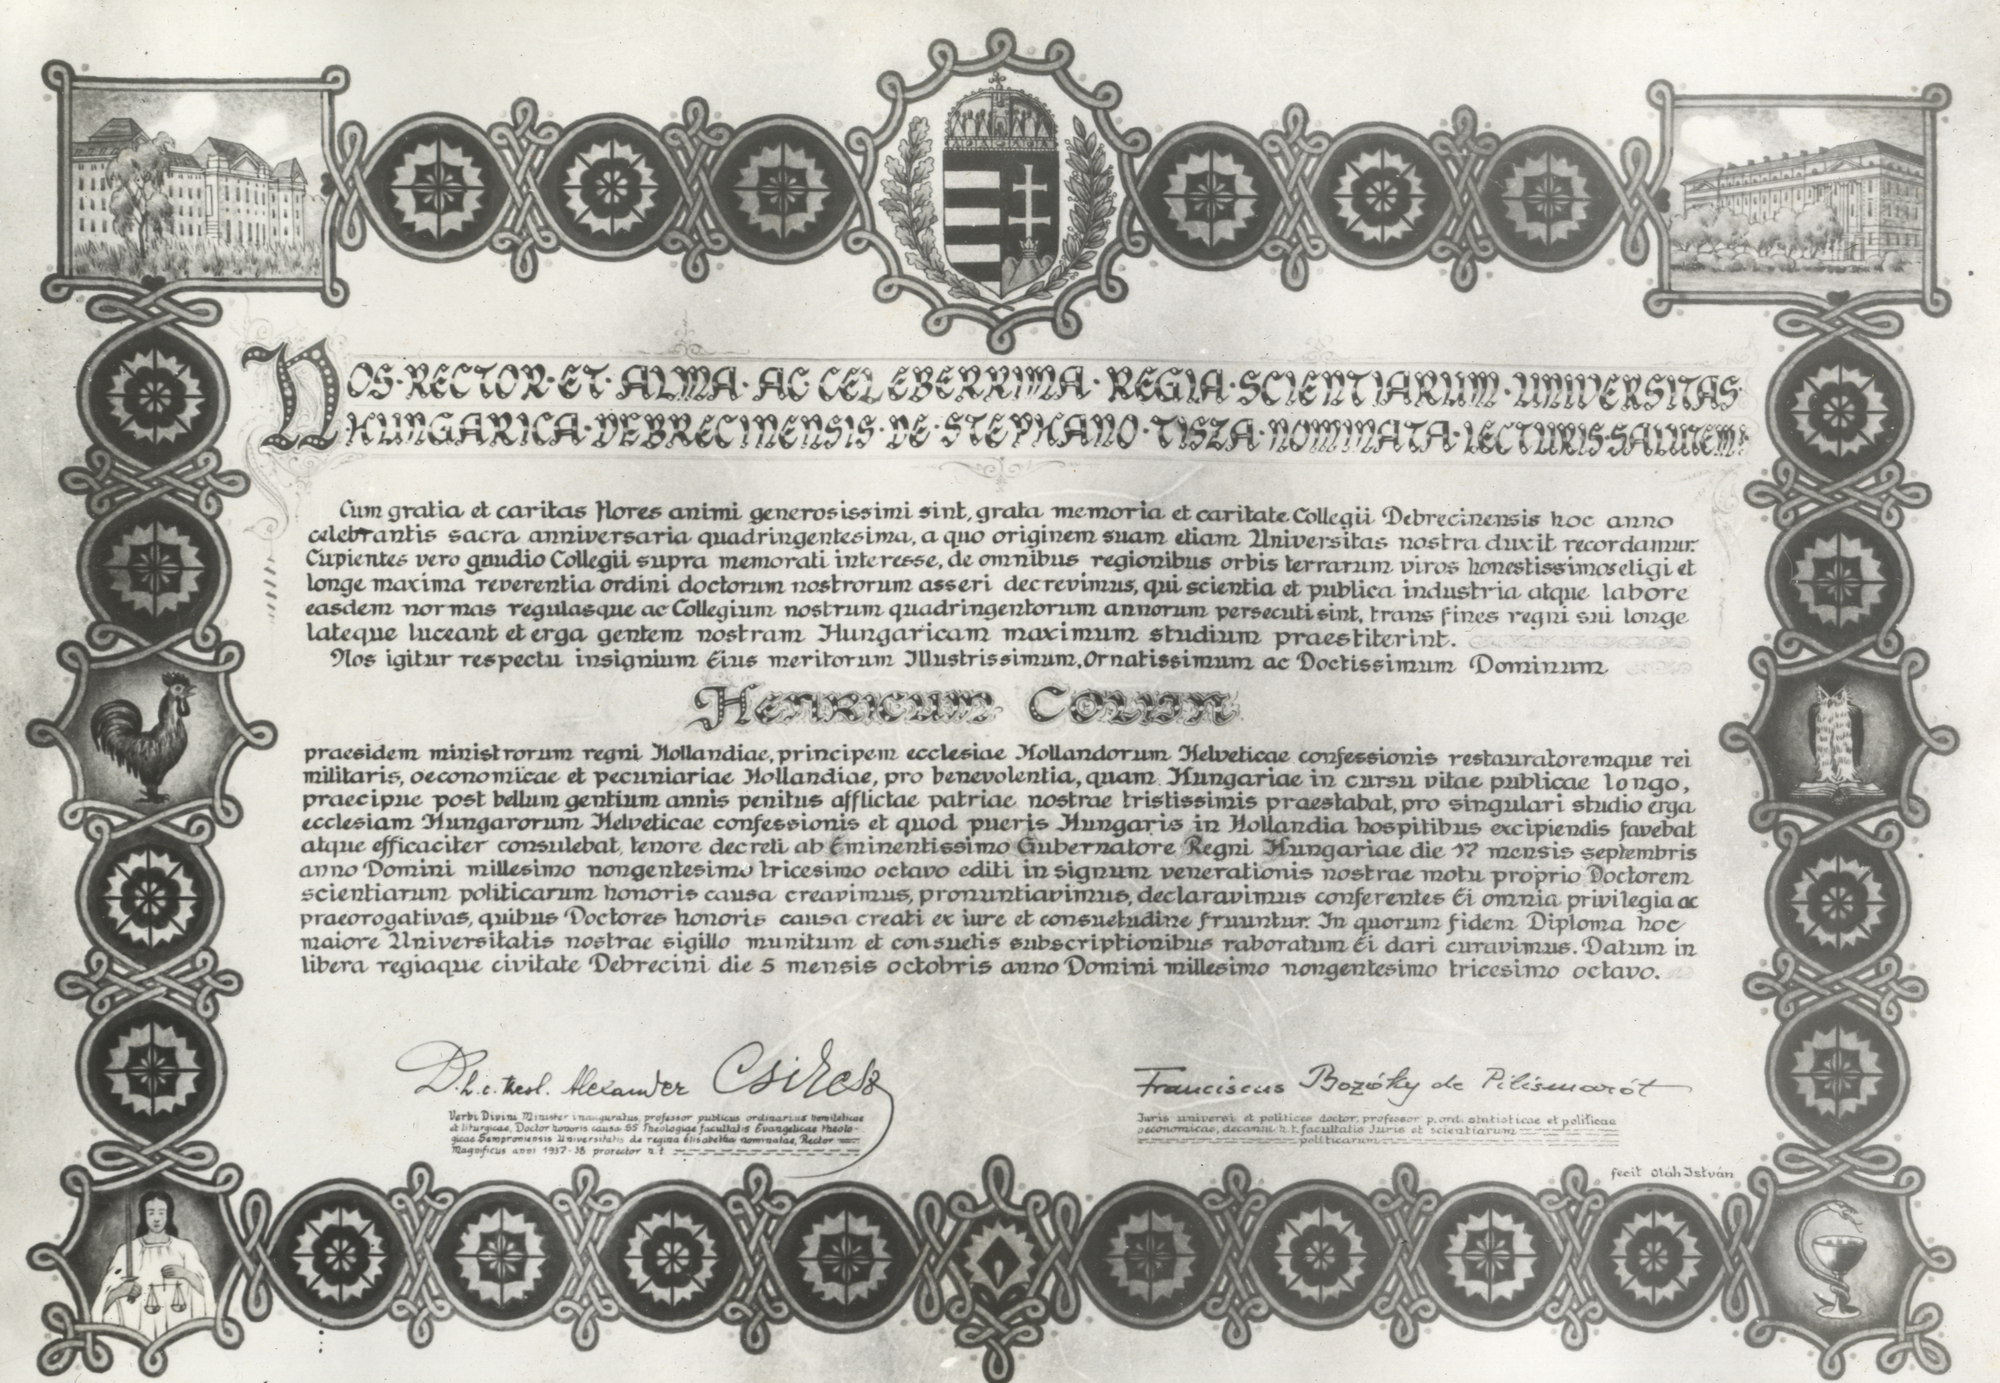 NOS·RECTOR·ET·ALMA·AC CELEBERRIMA·REGIA·SCIENTIARUM·UNIVERSITAS
HUNGARICA·DEBRECINENSIS·DE·STEPHANO·TISZA·NOMINATA·LECTURIS·SALUTEM:
Cum gratia et caritas flores animi generosissimi sint, grata memoria et caritate Collegii Debrecinensis hoc anno
celebrantis sacra anniversaria quadringentesima, a quo originem suam etiam Universitas nostra duxit recordamur.
Cupientes vero gaudio Collegii supra memorati interesse, de omnibus regionibus orbis terrarum viros honestissimos eligi et
longe maxima reverentia ordini doctorum nostrorum asseri decrevimus, qui scientia et publica industria atque labore
easdem normas regulasque ac Collegium nostrum quadringentorum annorum persecuti sint, trans fines regni sui longe
lateque luceant et erga gentem nostram Hungaricam maximum studium praestiterint.
Nos igitur respectu insignium Eius meritorum Illustrissimum, Ornatissimum ac Doctissimum Dominum
Henricum Colijn
praesidem ministrorum regni Hollandiae, principem ecclesiae Hollandorum Helveticae confessionis restauratoremque rei
militaris, oeconomicae et pecuniariae Hollandiae, pro benevolentia, quam Hungariae in cursu vitae publicae longo,
praecipue post bellum gentium annis penitus afflictae patriae nostrae tristissimis praestabat, pro singulari studio erga
ecclesiam Hungarorum Helveticae confessionis et quod pueris Hungaris in Hollandia hospitibus excipiendis favebat
atque efficaciter consulebat, tenore decreti ab Eminentissimo Gubernatore Regni Hungariae die 17 mensis septembris
anno Domini millesimo nongentesimo tricesimo octavo editi in signum venerationis nostrae motu proprio Doctorem
scientiarum politicarum honoris causa creavimus, pronuntiavimus, declaravimus conferentes Ei omnia privilegia ac
praerogativas, quibus Doctores honoris causa creati ex iure et consuetudine fruuntur. In quorum fidem Diploma hoc
maiore Universitatis nostrae sigillo munitum et consuetis subscriptionibus roboratum Ei dari curavimus. Datum in
libera regiaque civitate Debrecini die 5 mensis octobris anno Domini millesimo nongentesimo tricesimo octavo.
D. h. c. theol. Alexander Csikesz
Verbi Divini Minister inauguratus, professor publicus ordinarius homileticae
et liturgicae, Doctor honoris causa SS Theologiae facultatis Evangelicae theolo-
gicae Semproniensis Universitatis de regina Elisabetha nominatae, Rector
Magnificus anni 1937-38 prorector h. t.
Franciscus Bozóky de Pilismarót
Juris universi et politices doctor, professor p. ord. statisticae et politicae
oeconomicae, decanus h. t. facultatis Juris et scientiarum
politicarum
fecit Oláh István